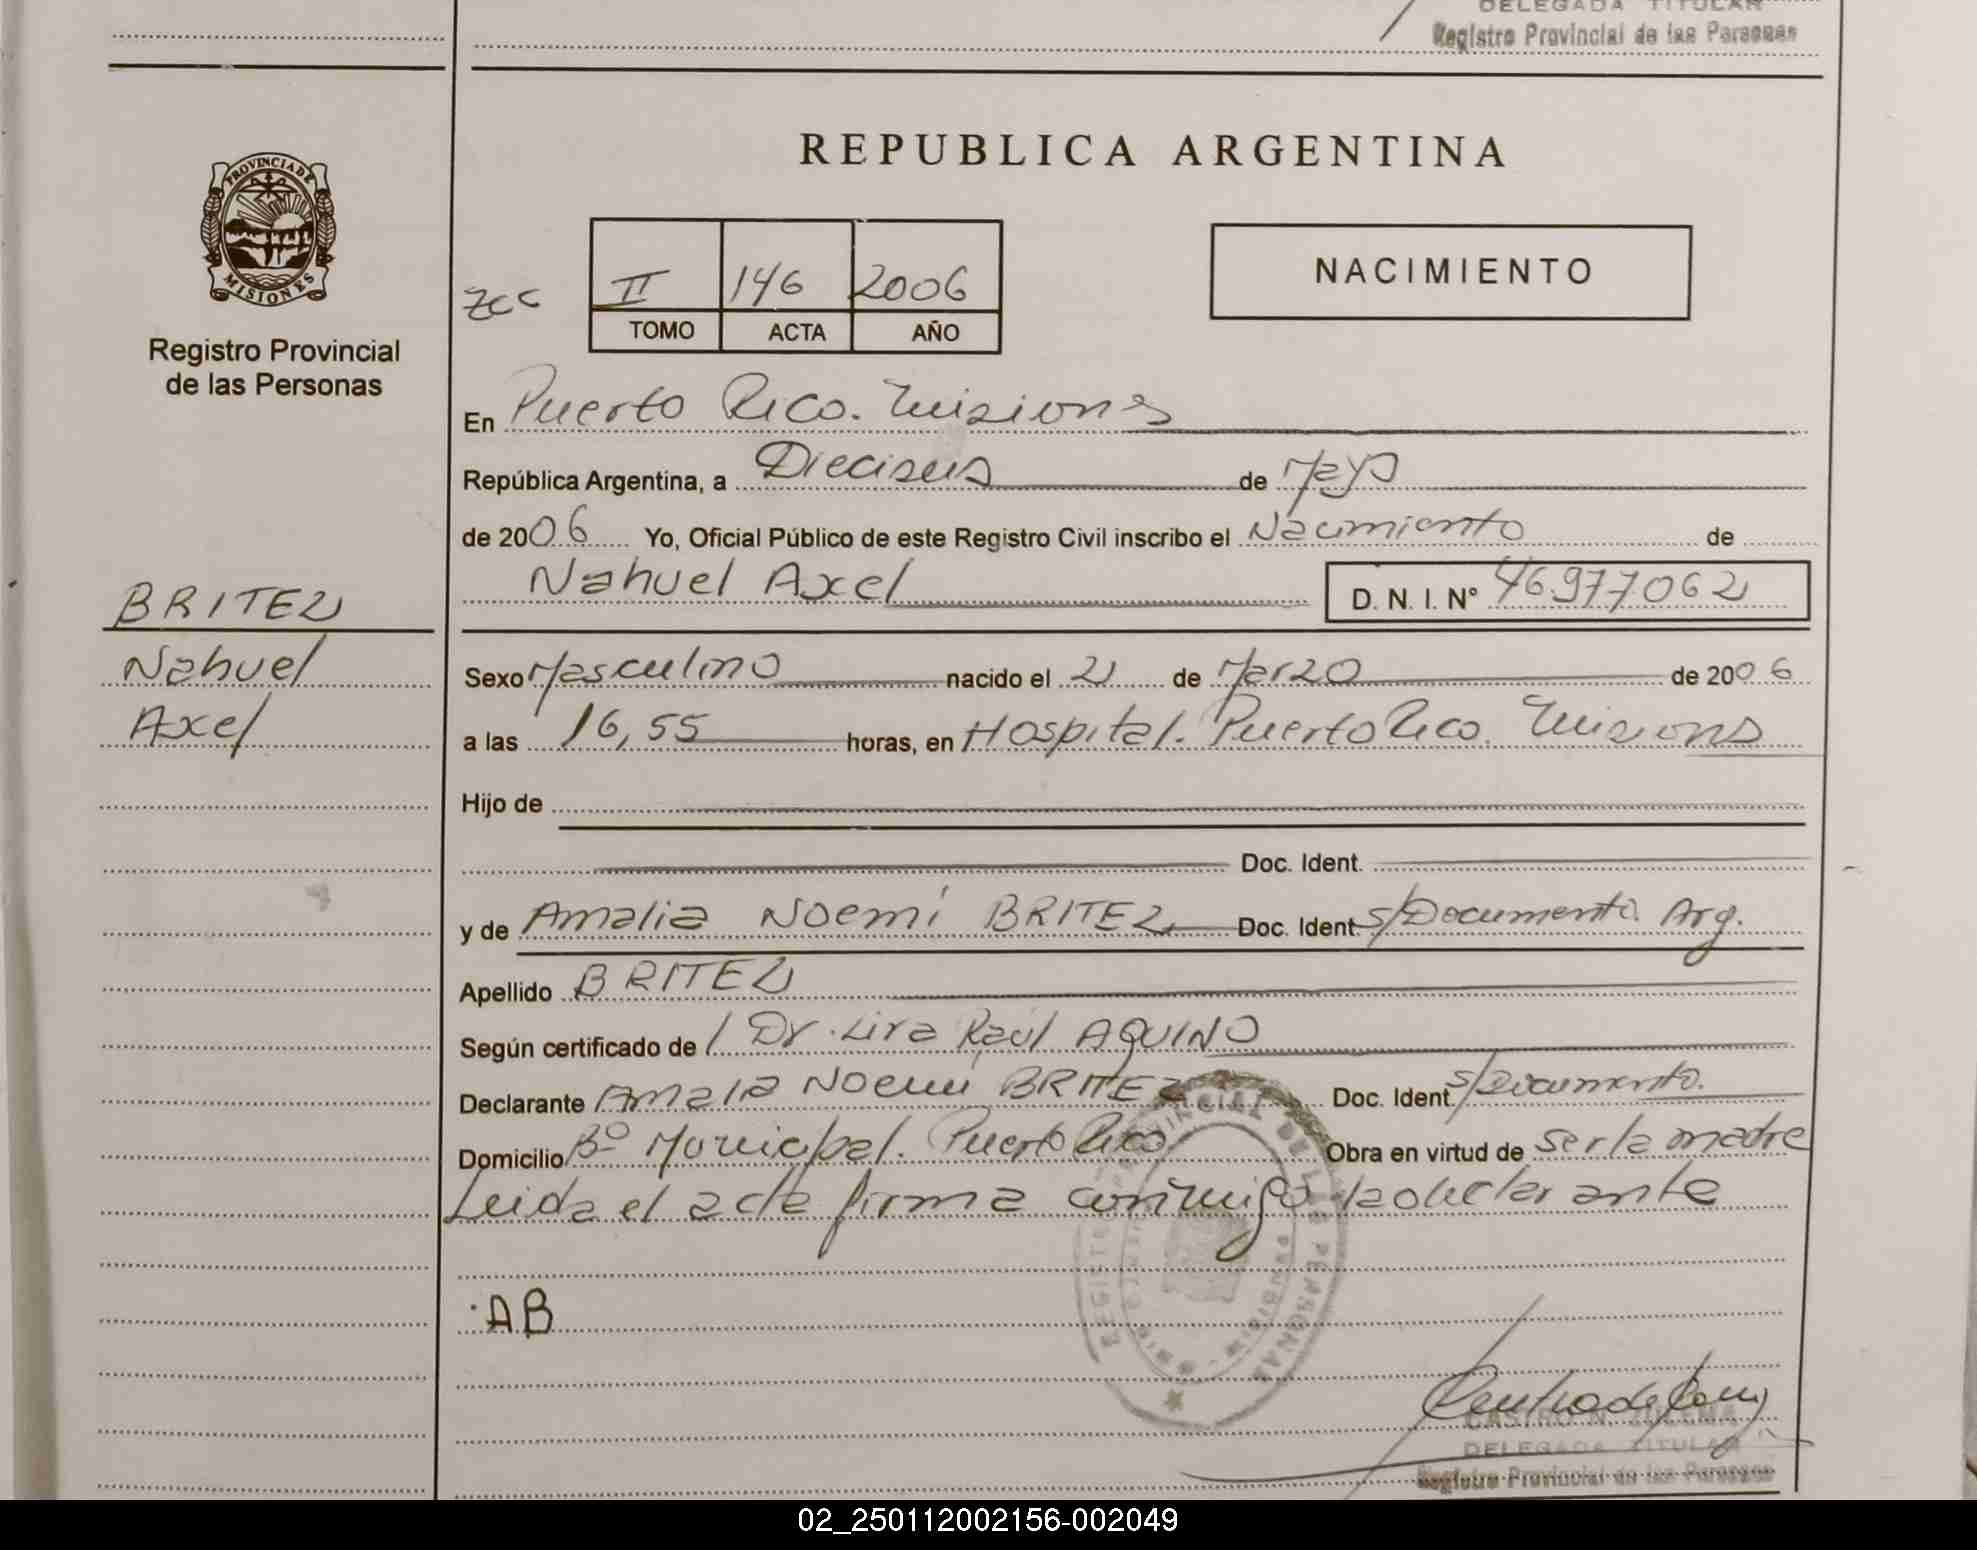 DELEGADA TITULAR
Registro Provincial de las Personas
PROVINCIA DE
MISIONES
Registro Provincial
de las Personas
REPUBLICA ARGENTINA
NACIMIENTO
zcc
II 146 2006
TOMO ACTA AÑO
En Puerto Rico. Misiones
República Argentina, a Dieciseis de Mayo
de 2006 Yo, Oficial Público de este Registro Civil inscribo el Nacimiento de
Nahuel Axel D. N. I. N° 46977062
BRITEZ
Nahuel
Axel
Sexo Masculino nacido el 21 de Marzo de 2006
a las 16,55 horas, en Hospital. Puerto Rico. Misiones
Hijo de
Doc. Ident.
y de Amalia Noemí BRITEZ Doc. Ident. s/Documento. Arg.
Apellido BRITEZ
Según certificado de Dr. Lira Raúl AQUINO
Declarante Amalia Noemí BRITEZ Doc. Ident. s/Documento.
Domicilio B° Municipal. Puerto Rico Obra en virtud de ser la madre
Leida el acta firma conmigo la declarante
AB
REGISTRO PROVINCIAL DE LAS PERSONAS
CASTRO N. ZULEMA
DELEGADA TITULAR
Registro Provincial de las Personas
02_250112002156-002049